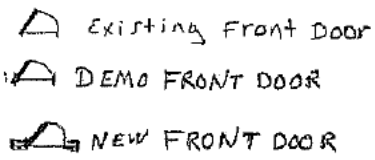 Existing Front Door
DEMO FRONT DOOR
NEW FRONT DOOR